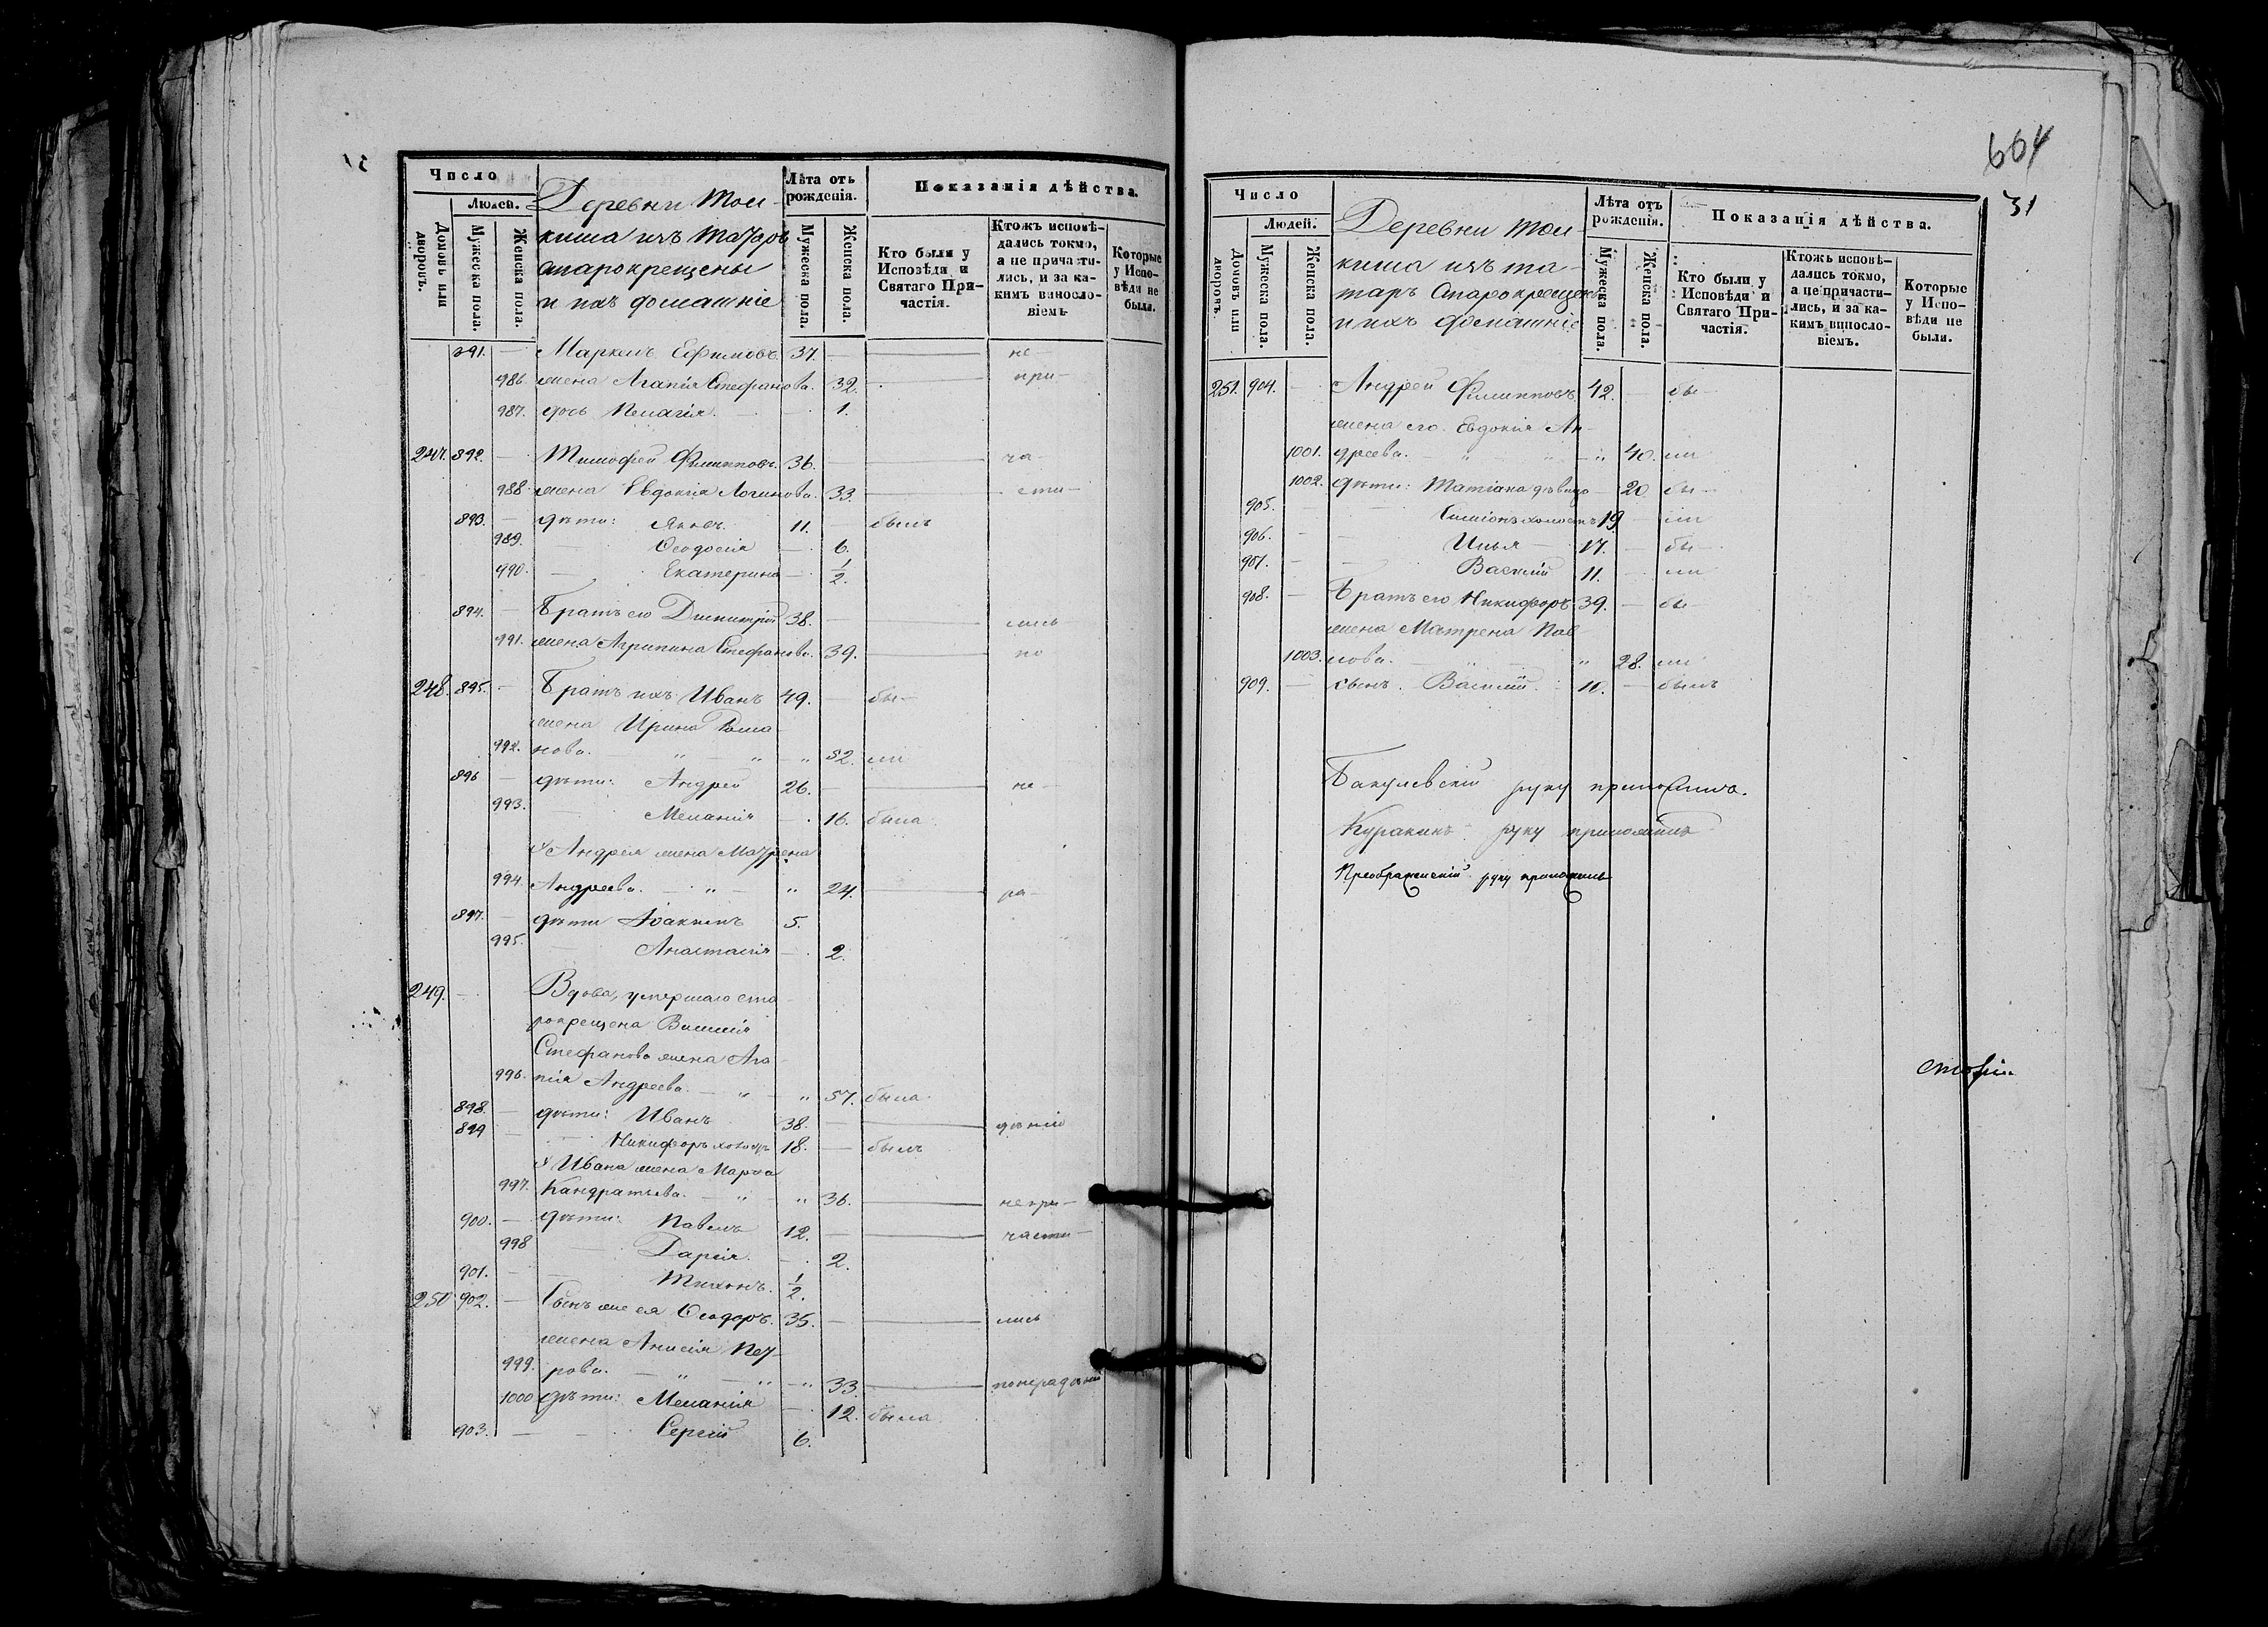 Число
Людей.
Домовъ или дворовъ.
Мужеска пола.
Женска пола.
Деревни Той-
киша изъ татаръ
старокрещены
и ихъ домашніе
Лѣта отъ рожденія.
Мужеска пола.
Женска пола.
Показанія дѣйства.
Кто были у Исповѣди и Святаго Причастія.
Ктожъ исповѣ-
дались токмо,
а не причасти-
лись, и за ка-
кимъ винословіемъ
Которые у Испо-
вѣди не были.
891. — Маркелъ Ефимовъ 37. — не-
986. жена Агапія Стефанова. 32. при-
987. дочь Пелагія. — 1.
247. 892. — Тимофей Филипповъ. 36. — ча-
988. жена Евдокія Логинова. 33. — сти-
893. — дѣти: Яковъ. 11. — былъ
989. — Ѳеодосія — 6.
990. — Екатерина — 1/2.
894. — Братъ его Димитрій 38. — лись
991. жена Агрипина Стефанова. 39. — по
248. 895. — Братъ ихъ Иванъ 49. — бы-
жена Ирина Рома-
992. нова. — " — " — " 52. ли
896 — дѣти: Андрей 26. — не-
993. — Меланія — 16. была
У Андрея жена Матрена
994. Андреева. — " — " 24. — ра-
897. — дѣти Іоакимъ 5.
995. — Анастасія — 2.
249. — Вдова, умершаго ста-
рокрещена Василія
Стефанова жена Ага-
996. пія Андреева. — " — " 57. была.
898. — дѣти: Иванъ 38. — дѣнію
899 — Никифоръ холостъ 18. — былъ
У Ивана жена Марѳа
997. Кандратьева. — " — " 36. — непри-
900. — дѣти: Павелъ 12. — части-
998 — Дарія. — 2.
901. — Тихонъ. 1/2.
250 902. — Сынъ же ея Ѳеодоръ. 35. — лись
жена Анисія Пет-
999. рова. — " — " — " 33. — понерадѣнію
1000. дѣти: Меланія — 12. была
903. — Сергій 6.
664
31
Число
Людей.
Домовъ или дворовъ.
Мужеска пола.
Женска пола.
Деревни Той-
киша изъ та-
таръ Старокрещены
и ихъ домашніе
Лѣта отъ рожденія.
Мужеска пола.
Женска пола.
Показанія дѣйства.
Кто были у Исповѣди и Святаго При-
частія.
Ктожъ исповѣ-
дались токмо,
а не причасти-
лись, и за ка-
кимъ винословіемъ.
Которые у Испо-
вѣди не были.
251. 904. — Андрей Филипповъ 42. — бы-
жена его Евдокія Ан-
1001. дреева. — " — " — " 40. ли
1002. дѣти: Татіана дѣвица — 20. бы-
905. — Симіонъ холостъ 19 — ли
906. — Илья — 17. — бы-
907. — Василій 11. — ли
908. — Братъ его Никифоръ 39. — бы-
жена Матрена Пав-
1003. лова. — " — " 28. ли
909. — Сынъ. Василій. — 10. — былъ
Бакулевскій руку приложилъ.
Куракинъ руку приложилъ
Преображенскій руку приложилъ